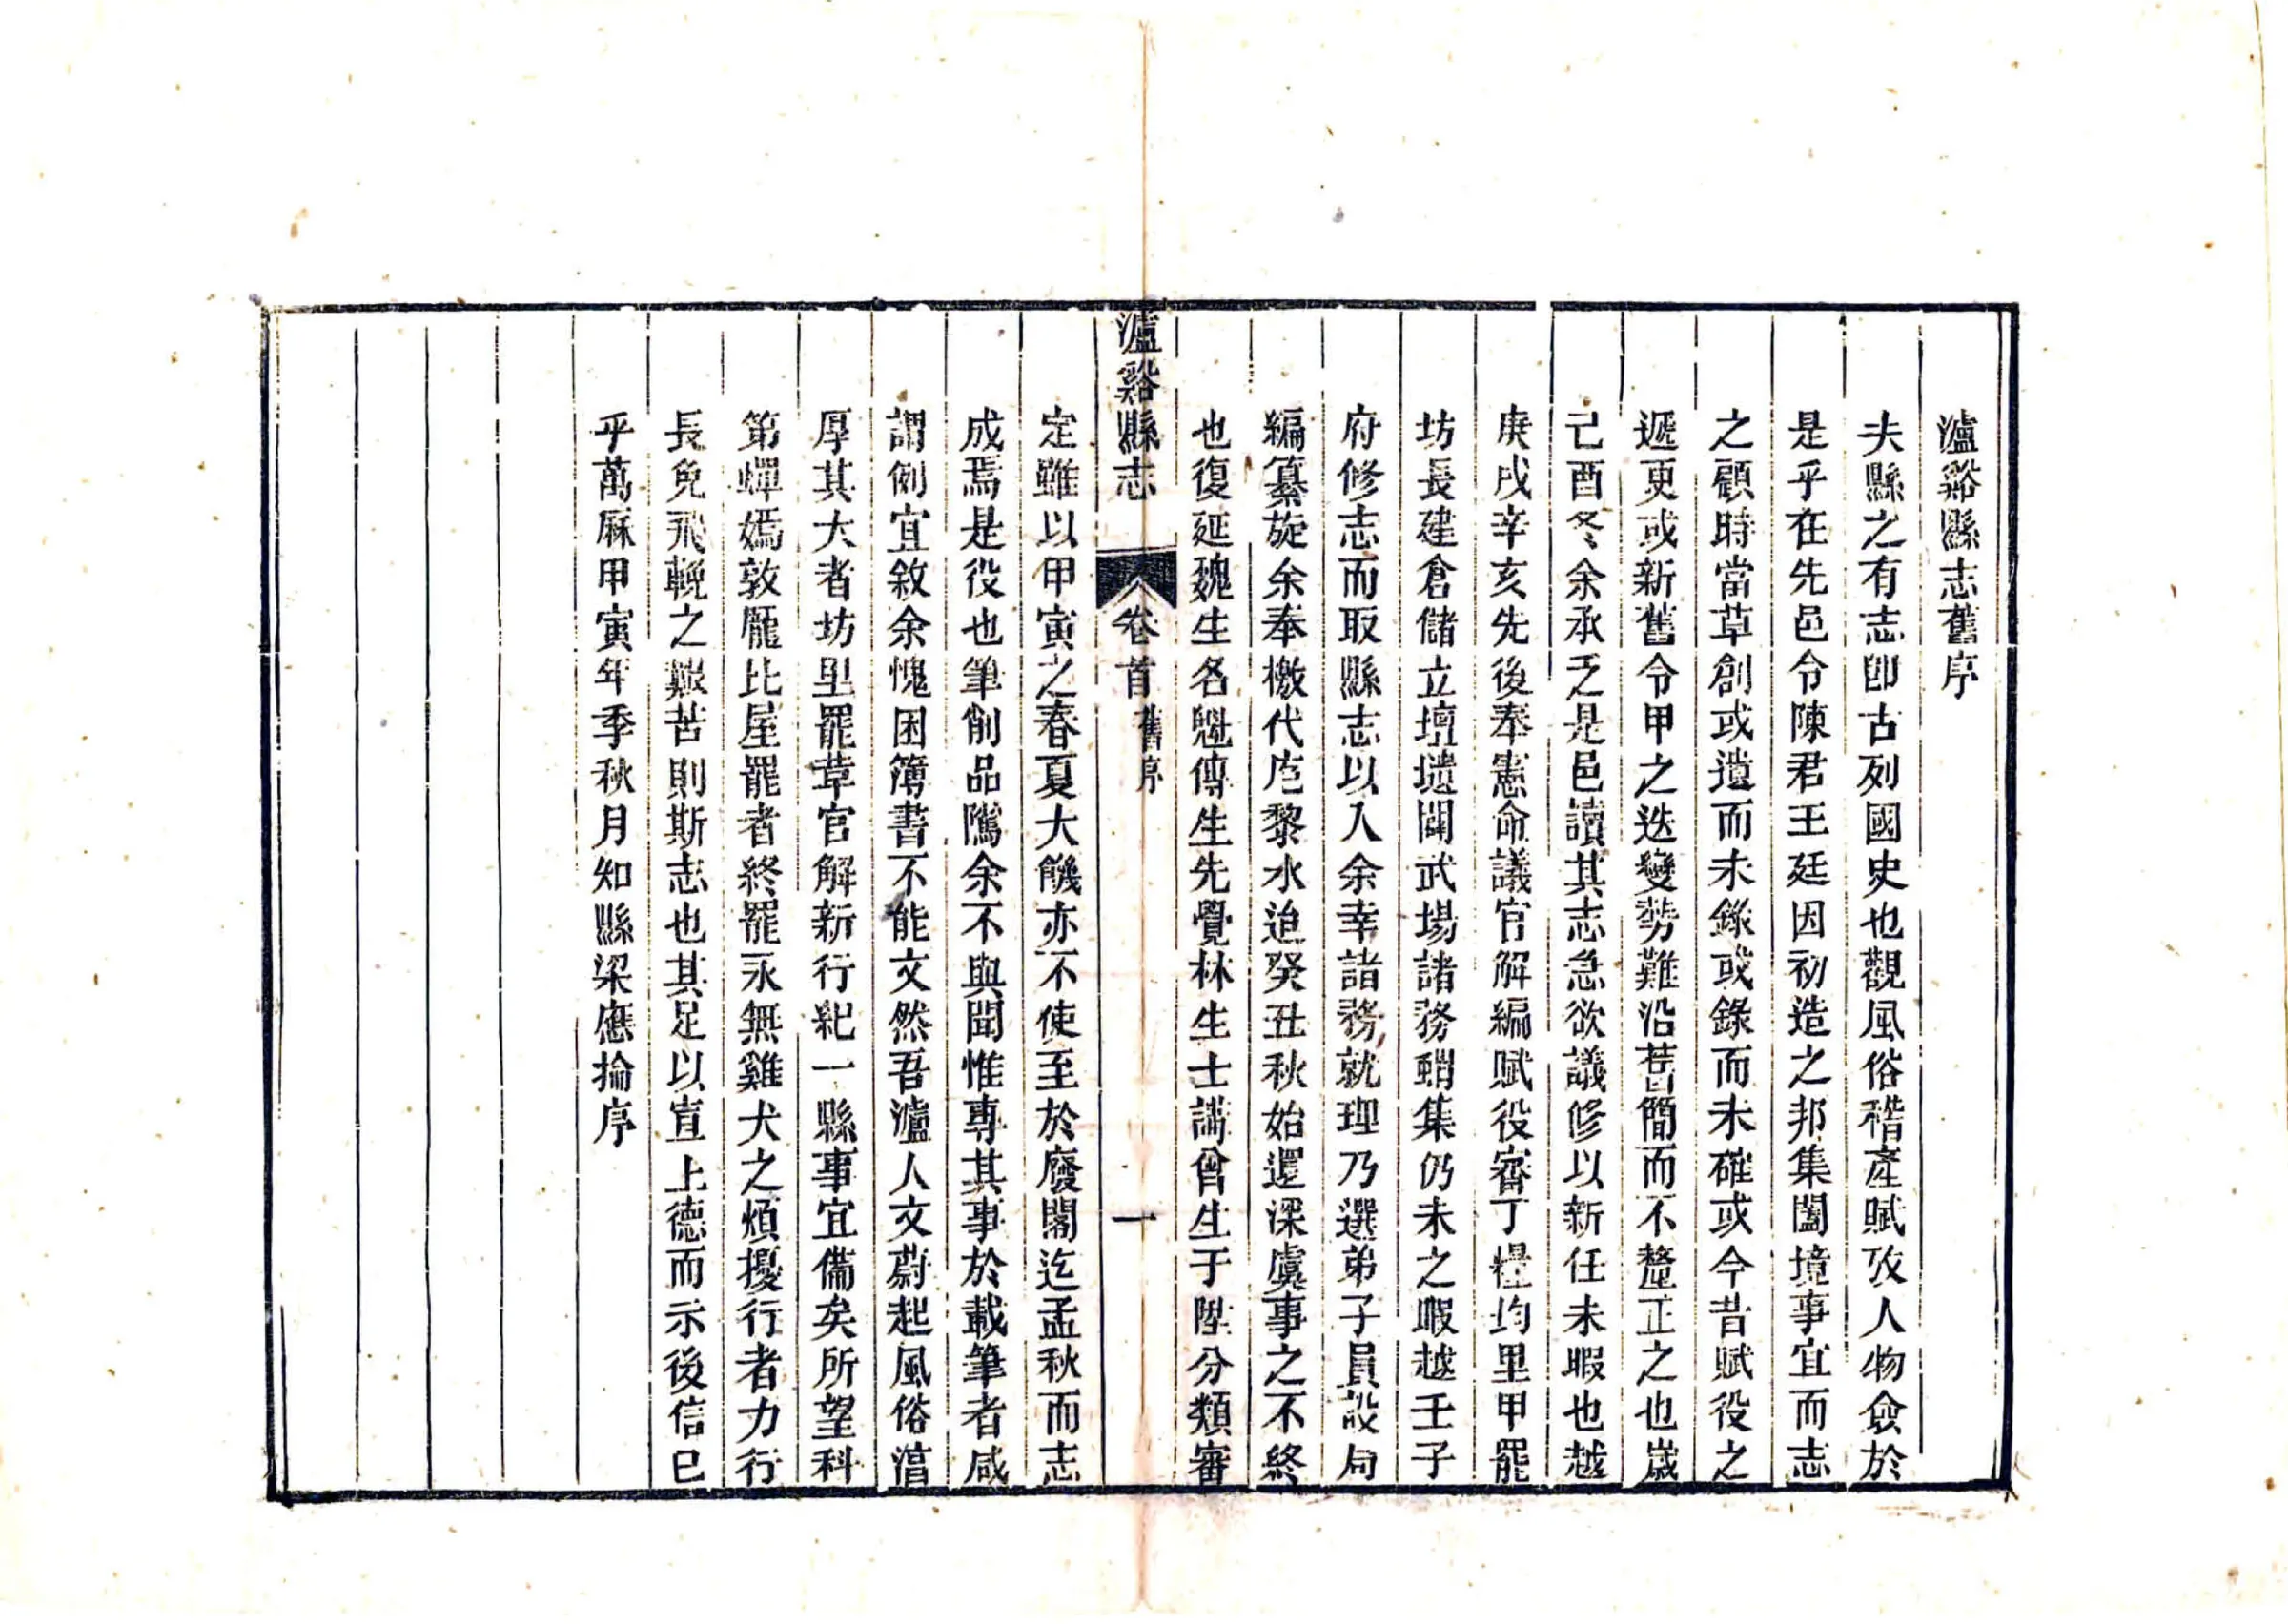 瀘谿縣志舊序
夫縣之有志卽古列國史也觀風俗稽產賦攷人物僉於
是乎在先邑令陳君王廷因初造之邦集闔境事宜而志
之顧時當草創或遺而未錄或錄而未確或今昔賦役之
遞更或新舊令甲之迭變勢難沿舊簡而不釐正之也歲
己酉冬余承乏是邑讀其志急欲議修以新任未暇也越
庚戌辛亥先後奉憲命議官解編賦役審丁糧均里甲罷
坊長建倉儲立壇壝闢武場諸務蝟集仍未之暇越壬子
府修志而取縣志以入余幸諸務就理乃選弟子員設局
編纂旋余奉檄代庀黎水迨癸丑秋始還深虞事之不終
也復延魏生名魁傅生先覺林生士謫曾生于陛分類審
瀘谿縣志 卷首 舊序 一
定雖以甲寅之春夏大饑亦不使至於廢閣迄孟秋而志
成焉是役也筆削品隲余不與聞惟專其事於載筆者咸
謂例宜敘余愧困簿書不能文然吾瀘人文蔚起風俗湻
厚其大者坊里罷革官解新行紀一縣事宜備矣所望科
第蟬嫣敦龎比屋罷者終罷永無雞犬之煩擾行者力行
長免飛輓之艱苦則斯志也其足以宣上德而示後信已
乎萬厤甲寅年季秋月知縣梁應掄序